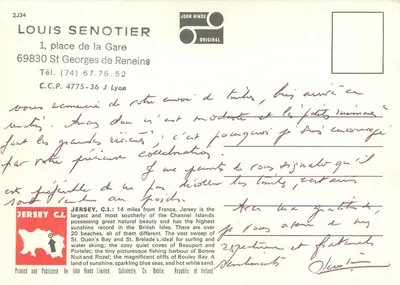 2J34
JOHN HINDE
ORIGINAL
LOUIS SENOTIER
1, place de la Gare
69830 St Georges de Reneins
Tél. (74) 67.76.52
C.C.P. 4775-36 J Lyon
vous remercie de votre envoi de timbres, bien arrivé en
Aucun don n'est modeste et les "petits
font les grandes rivières", c'est pourquoi je suis encouragé
par votre précieuse collaboration.
Je me permets de vous signaler qu'il
est préférable de ne pas les timbres, certains
sont
Avec ma gratitude,
je vous assure de mes
respectueux et fraternels
sentiments
JERSEY C.I.
JERSEY, C.I.: 14 miles from France, Jersey is the
largest and most southerly of the Channel Islands
possessing great natural beauty and has the highest
sunshine record in the British Isles. There are over
20 beaches, all of them different. The vast sweep of
St. Ouen's Bay and St. Brelade's, ideal for surfing and
water skiing; the coy quiet coves of Beauport and
Portelet; the tiny picturesque fishing harbour of Bonne
Nuit and Rozel; the magnificent cliffs of Bouley Bay. A
land of sunshine, sparkling blue seas, and hot white sand.
Printed and Published by John Hinde Limited, Cabinteely, Co. Dublin, Republic of Ireland